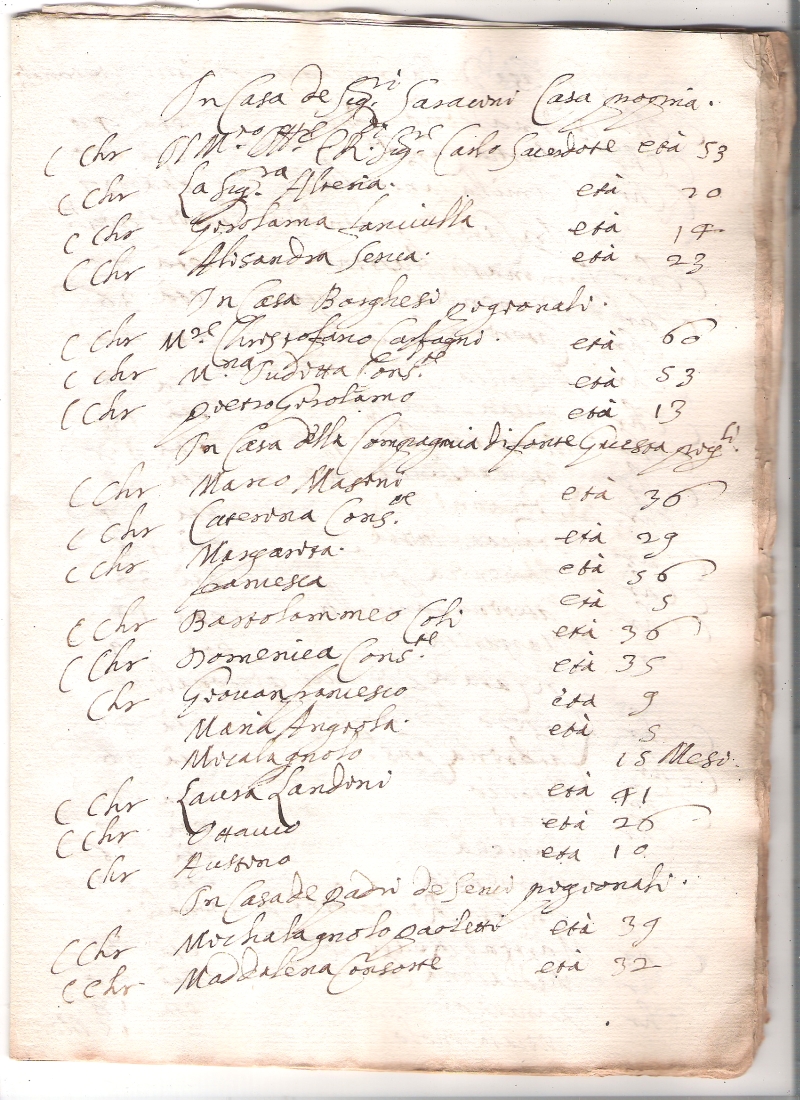 In Casa de Sig.ri Saracini Casa propria.
C Chr Ill M.ro Sig.re Carlo Sacerdote età 53
C Chr La Sig.ra Alteria. età 20
C Chr Girolama età 14
C Chr Alisandra Senca. età 23
In Casa Borghesi pigionali.
C Chr M.re Christofano Cafagni. età 60
C Chr M.na Juditta Cons.te età 53
C Chr Pietro Girolamo età 13
In Casa della Compagnia di fonte Giusta pig.li.
C Chr Marco Masini età 36
C Chr Caterina Cons.te età 29
C Chr Margarita. età 56
francesca età 5
C Chr Bartolommeo Coli età 36
C Chr Domenica Cons.te età 35
Chr Giovanfrancesco età 9
Maria Angiola. età 5
Micalagnolo 15 Mesi.
C Chr Laura Landini età 41
C Chr Ottavio età 26
Chr Austino età 10
In Casa de padri de Servi pigionali.
C Chr Michalagnolo paoletti età 39
C Chr Maddalena Consorte età 32